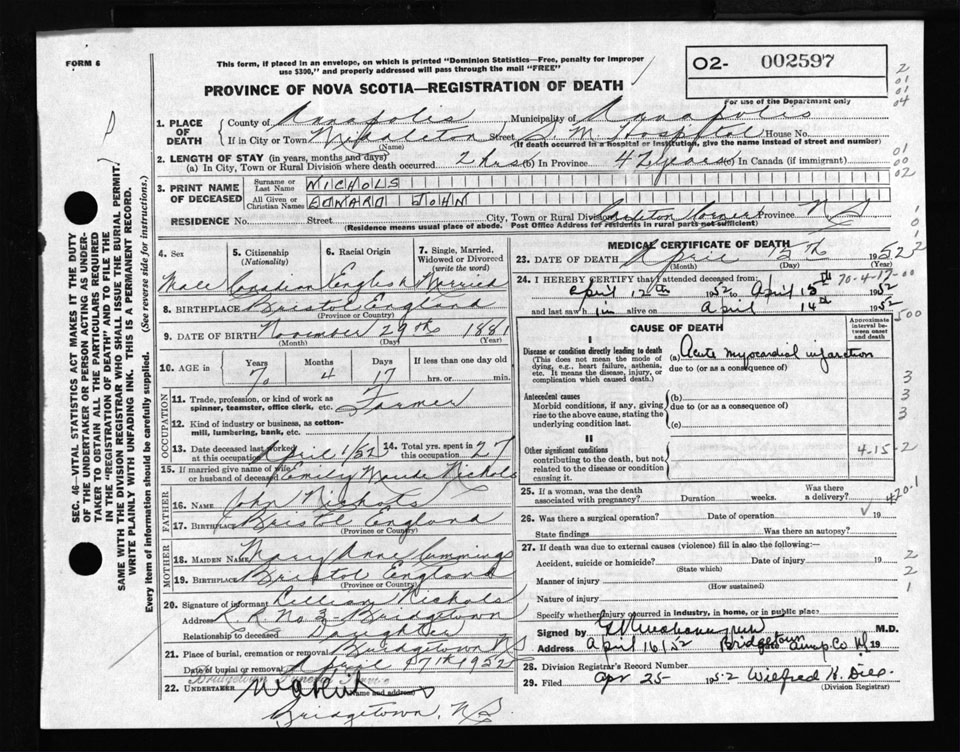 FORM 6
This form, if placed in an envelope, on which is printed "Dominion Statistics—Free, penalty for improper
use $300," and properly addressed will pass through the mail "FREE"
PROVINCE OF NOVA SCOTIA—REGISTRATION OF DEATH
O2- 002597
For use of the Department only
1. PLACE OF DEATH County of Annapolis Municipality of Annapolis
If in City or Town Middleton Street S M Hospital House No.
(Name) (If death occurred in a hospital or institution, give the name instead of street and number)
2. LENGTH OF STAY (in years, months and days)
(a) In City, Town or Rural Division where death occurred 2 hrs (b) In Province 42 years (c) In Canada (if immigrant)
3. PRINT NAME OF DECEASED Surname or Last Name NICHOLS
All Given or Christian Names EDWARD JOHN
RESIDENCE No. Street. City, Town or Rural Division Corner Province N S
(Residence means usual place of abode. Post Office Address for residents in rural parts not sufficient)
4. Sex 5. Citizenship (Nationality) 6. Racial Origin 7. Single, Married, Widowed or Divorced (write the word)
Male Canadian English Married
8. BIRTHPLACE Bristol England
(Province or Country)
9. DATE OF BIRTH November 29th 1881
(Month) (Day) (Year)
10. AGE in Years Months Days If less than one day old
70 4 17 hrs. or min.
OCCUPATION
11. Trade, profession, or kind of work as spinner, teamster, office clerk, etc. Farmer
12. Kind of industry or business, as cotton-mill, lumbering, bank, etc.
13. Date deceased last worked at this occupation April 1/52 14. Total yrs. spent in this occupation 27
15. If married give name of wife or husband of deceased Emily Maude Nichols
FATHER
16. Name John Nichols
17. Birthplace Bristol England
(Province or Country)
MOTHER
18. Maiden Name Mary Anne Cummings
19. Birthplace Bristol England
(Province or Country)
20. Signature of informant Lillian Nichols
Address R R No 3 Bridgetown
Relationship to deceased Daughter
21. Place of burial, cremation or removal Bridgetown NS
Date of burial or removal April 17th 1952
Bridgetown Funeral Service
22. UNDERTAKER
Name and address
Bridgetown, N S
MEDICAL CERTIFICATE OF DEATH
23. DATE OF DEATH April 15th 1952
(Month) (Day) (Year)
24. I HEREBY CERTIFY that I attended deceased from: 70-4-17-00
April 12th 1952 to April 15th 1952
and last saw him alive on April 14th 1952
CAUSE OF DEATH
Approximate interval between onset and death
I
Disease or condition directly leading to death
(This does not mean the mode of dying, e.g., heart failure, asthenia, etc. It means the disease, injury, or complication which caused death.)
(a) Acute myocardial infarction
due to (or as a consequence of)
Antecedent causes
Morbid conditions, if any, giving rise to the above cause, stating the underlying condition last.
(b)
due to (or as a consequence of)
(c)
II
Other significant conditions
contributing to the death, but not related to the disease or condition causing it.
4-15-2
25. If a woman, was the death associated with pregnancy? Duration weeks. Was there a delivery?
420.1
26. Was there a surgical operation? Date of operation 19
State findings Was there an autopsy?
27. If death was due to external causes (violence) fill in also the following:—
Accident, suicide or homicide? Date of injury 19
(State which)
Manner of injury
(How sustained)
Nature of injury
Specify whether injury occurred in industry, in home, or in public place
Signed by M.D.
Address April 16/52 Bridgetown 19
28. Division Registrar's Record Number
29. Filed Apr 25- 1952 Wilfred H. Dill
(Division Registrar)
SEC. 46—VITAL STATISTICS ACT MAKES IT THE DUTY
OF THE UNDERTAKER OR PERSON ACTING AS UNDER-
TAKER TO OBTAIN ALL THE PARTICULARS REQUIRED
IN THE "REGISTRATION OF DEATH" AND TO FILE THE
SAME WITH THE DIVISION REGISTRAR WHO SHALL ISSUE THE BURIAL PERMIT.
WRITE PLAINLY WITH UNFADING INK. THIS IS A PERMANENT RECORD.
Every item of information should be carefully supplied. (See reverse side for instructions.)